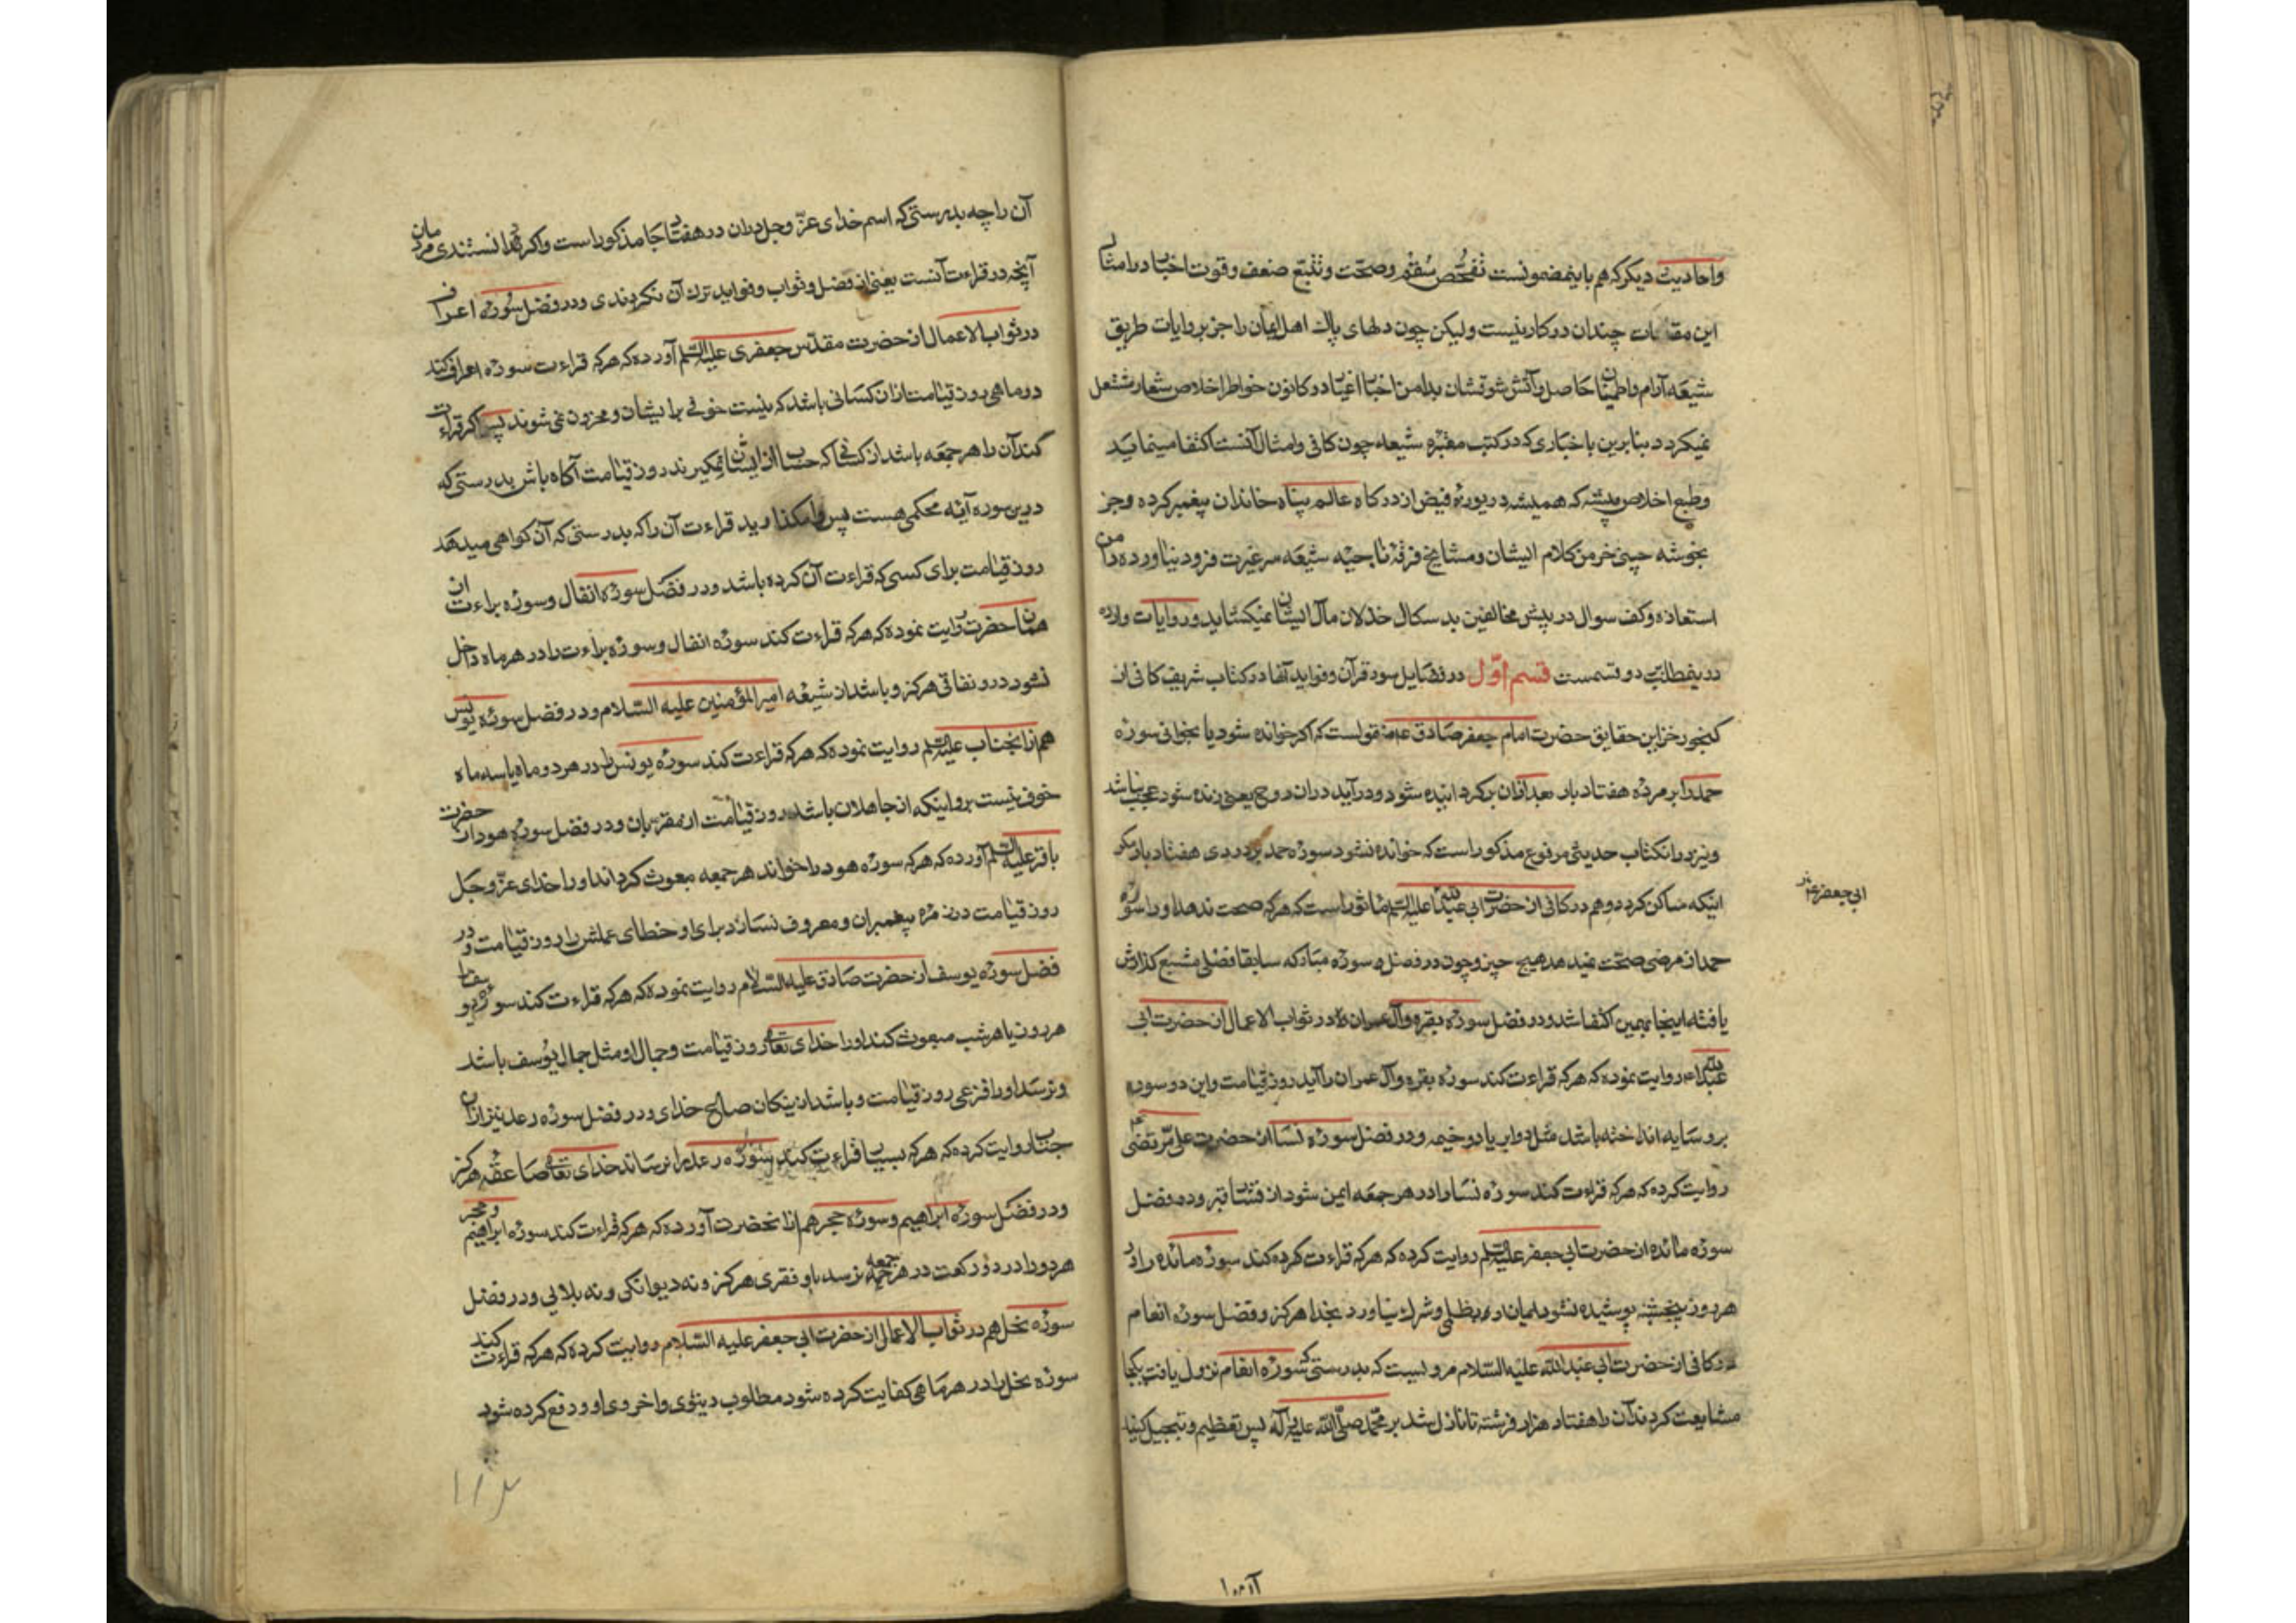 واحادیث دیکر که هم باینمضمونست تفحّص سُقم وصحّت وتتبّع ضعف وقوت اخبار درامثال
این مقامات چندان درکار نیست ولیکن چون دلهای پاك اهل ایمان را جز بروایات طریق
شیعه آرام واطمینان حاصل وآتش شوقشان بدامن اخبار اغیار درکانون خواطر اخلاص شعار مشتعل
نمیکردد بنابرین باخباری که درکتب معتبره شیعه چون کافی وامثال آنست اکتفا مینماید
وطبع اخلاص پیشه که همیشه دریوزه فیض از درکاه عالم پناه خاندان پیغمبر کرده وجز
بخوشه چینی خرمن کلام ایشان ومشایخ فرقه ناجیه شیعه سر غیرت فرود نیاورده دامن
استعاذه وکف سوال در پیش مخالفین بدسکال خذلان مآل ایشان نمیکشاید وروایات وارده
درینمطلب دو قسمست قسم اوّل در فضایل سور قرآن وفواید آنها در کتاب شریف کافی از
کنجور خزاین حقایق حضرت امام جعفر صادق ع منقولست که اکر خوانده شود یا بخوانی سوره
حمد را بر مرده هفتاد بار بعد ازان برکردانیده شود ودرآید دران روح یعنی زنده شود عجب نباشد
ونیز درانکتاب حدیثی مرفوع مذکور است که خوانده نشود سوره حمد بر دردی هفتاد بار مکر
اینکه ساکن کردد وهم در کافی از حضرت ابی عبدالله علیه السلم ماثور است که هرکه صحت ندهد اورا سوره
ابی جعفر ع
حمد از مرضی صحّت نمیدهد هیچ چیز وچون در فضل سوره مبارکه سابقا فضلی مشبع کذارش
یافته اینجا بهمین اکتفا شد ودر فضل سوره بقره وآل عمران در ثواب الاعمال از حضرت ابی
عبدالله ع روایت نموده که هرکه قراءت کند سوره بقره وآل عمران را آید روز قیامت واین دو سوره
برو سایه انداخته باشد مثل دو ابر یا دو خیمه ودر فضل سوره نسا از حضرت علی مرتضی ع
روایت کرده که هرکه قراءت کند سوره نسا را در هر جمعه ایمن شود از فشار قبر ودر فضل
سوره مائده از حضرت ابی جعفر علیه السلم روایت کرده که هرکه قراءت کرده کند سوره مائده را در
هر روز پنجشنبه پوشیده نشود ایمان او بظلمی وشرك نیاورد بخدا هرکز وفضل سوره انعام
در کافی از حضرت ابی عبدالله علیه السلام مرویست که بدرستی که سوره انعام نزول یافت یکجا
مشایعت کردند آن را هفتاد هزار فرشته تا نازل شد بر محمّد صلّی الله علیه وآله پس تعظیم وتبجیل کنید
آن را چه بدرستی که اسم خدای عزّ وجل دران در هفتاد جا مذکور است واکر دانستندی مردمان
آنچه در قراءت آنست یعنی از فضل وثواب وفواید ترك آن نکردندی ودر فضل سوره اعراف
در ثواب الاعمال از حضرت مقدّس جعفری علیه السلم آورده که هرکه قراءت سوره اعراف کند
در ماهی روز قیامت ازان کسانی باشد که نیست خوفی بر ایشان ومحزون نمی شوند پس اکر قراءت
کند آن را هر جمعه باشد از کسانی که حساب از ایشان نمیکیرند روز قیامت آکاه باش بدرستی که
درین سوره آیه محکمی هست پس وامکذارید قراءت آن را که بدرستی که آن کواهی میدهد
روز قیامت برای کسی که قراءت آن کرده باشد ودر فضل سوره انفال وسوره براءت از
همان حضرت روایت نموده که هرکه قراءت کند سوره انفال وسوره براءت را در هر ماه داخل
نشود درو نفاقی هرکز وباشد از شیعه امیر المؤمنین علیه السّلام ودر فضل سوره یونس
هم ازانجناب علیه السلم روایت نموده که هرکه قراءت کند سوره یونس را در هر دو ماه یا سه ماه
خوف نیست برو اینکه از جاهلان باشد روز قیامت از مقربان ودر فضل سوره هود از حضرت
باقر علیه السلم آورده که هرکه سوره هود را خواند هر جمعه مبعوث کرداند اورا خدای عزّ وجل
روز قیامت در زمره پیغمبران ومعروف نسازد برای او خطای عملش را روز قیامت ودر
فضل سوره یوسف از حضرت صادق علیه السّلام روایت نموده که هرکه قراءت کند سوره یوسف را
هر روز یا هر شب مبعوث کند اورا خدای تعالی روز قیامت وجمال او مثل جمال یُوسف باشد
ونرسد اورا فزعی روز قیامت وباشد از نیکان صالح خدای ودر فضل سوره رعد نیز ازان
جناب روایت کرده که هرکه بسیار قراءت کند سوره رعد را نرساند خدای تعالی صاعقه هرکز
ودر فضل سوره ابراهیم وسوره حجر هم ازانحضرت آورده که هرکه قراءت کند سوره ابراهیم وحجر
هردو را در دو رکعت در هر جمعه نرسد باو فقری هرکز ونه دیوانکی ونه بلایی ودر فضل
سوره نحل هم در ثواب الاعمال از حضرت ابی جعفر علیه السّلام روایت کرده که هرکه قراءت کند
سوره نحل را در هر ماهی کفایت کرده شود مطلوب دنیوی واخروی او ودفع کرده شود
۱۱۲